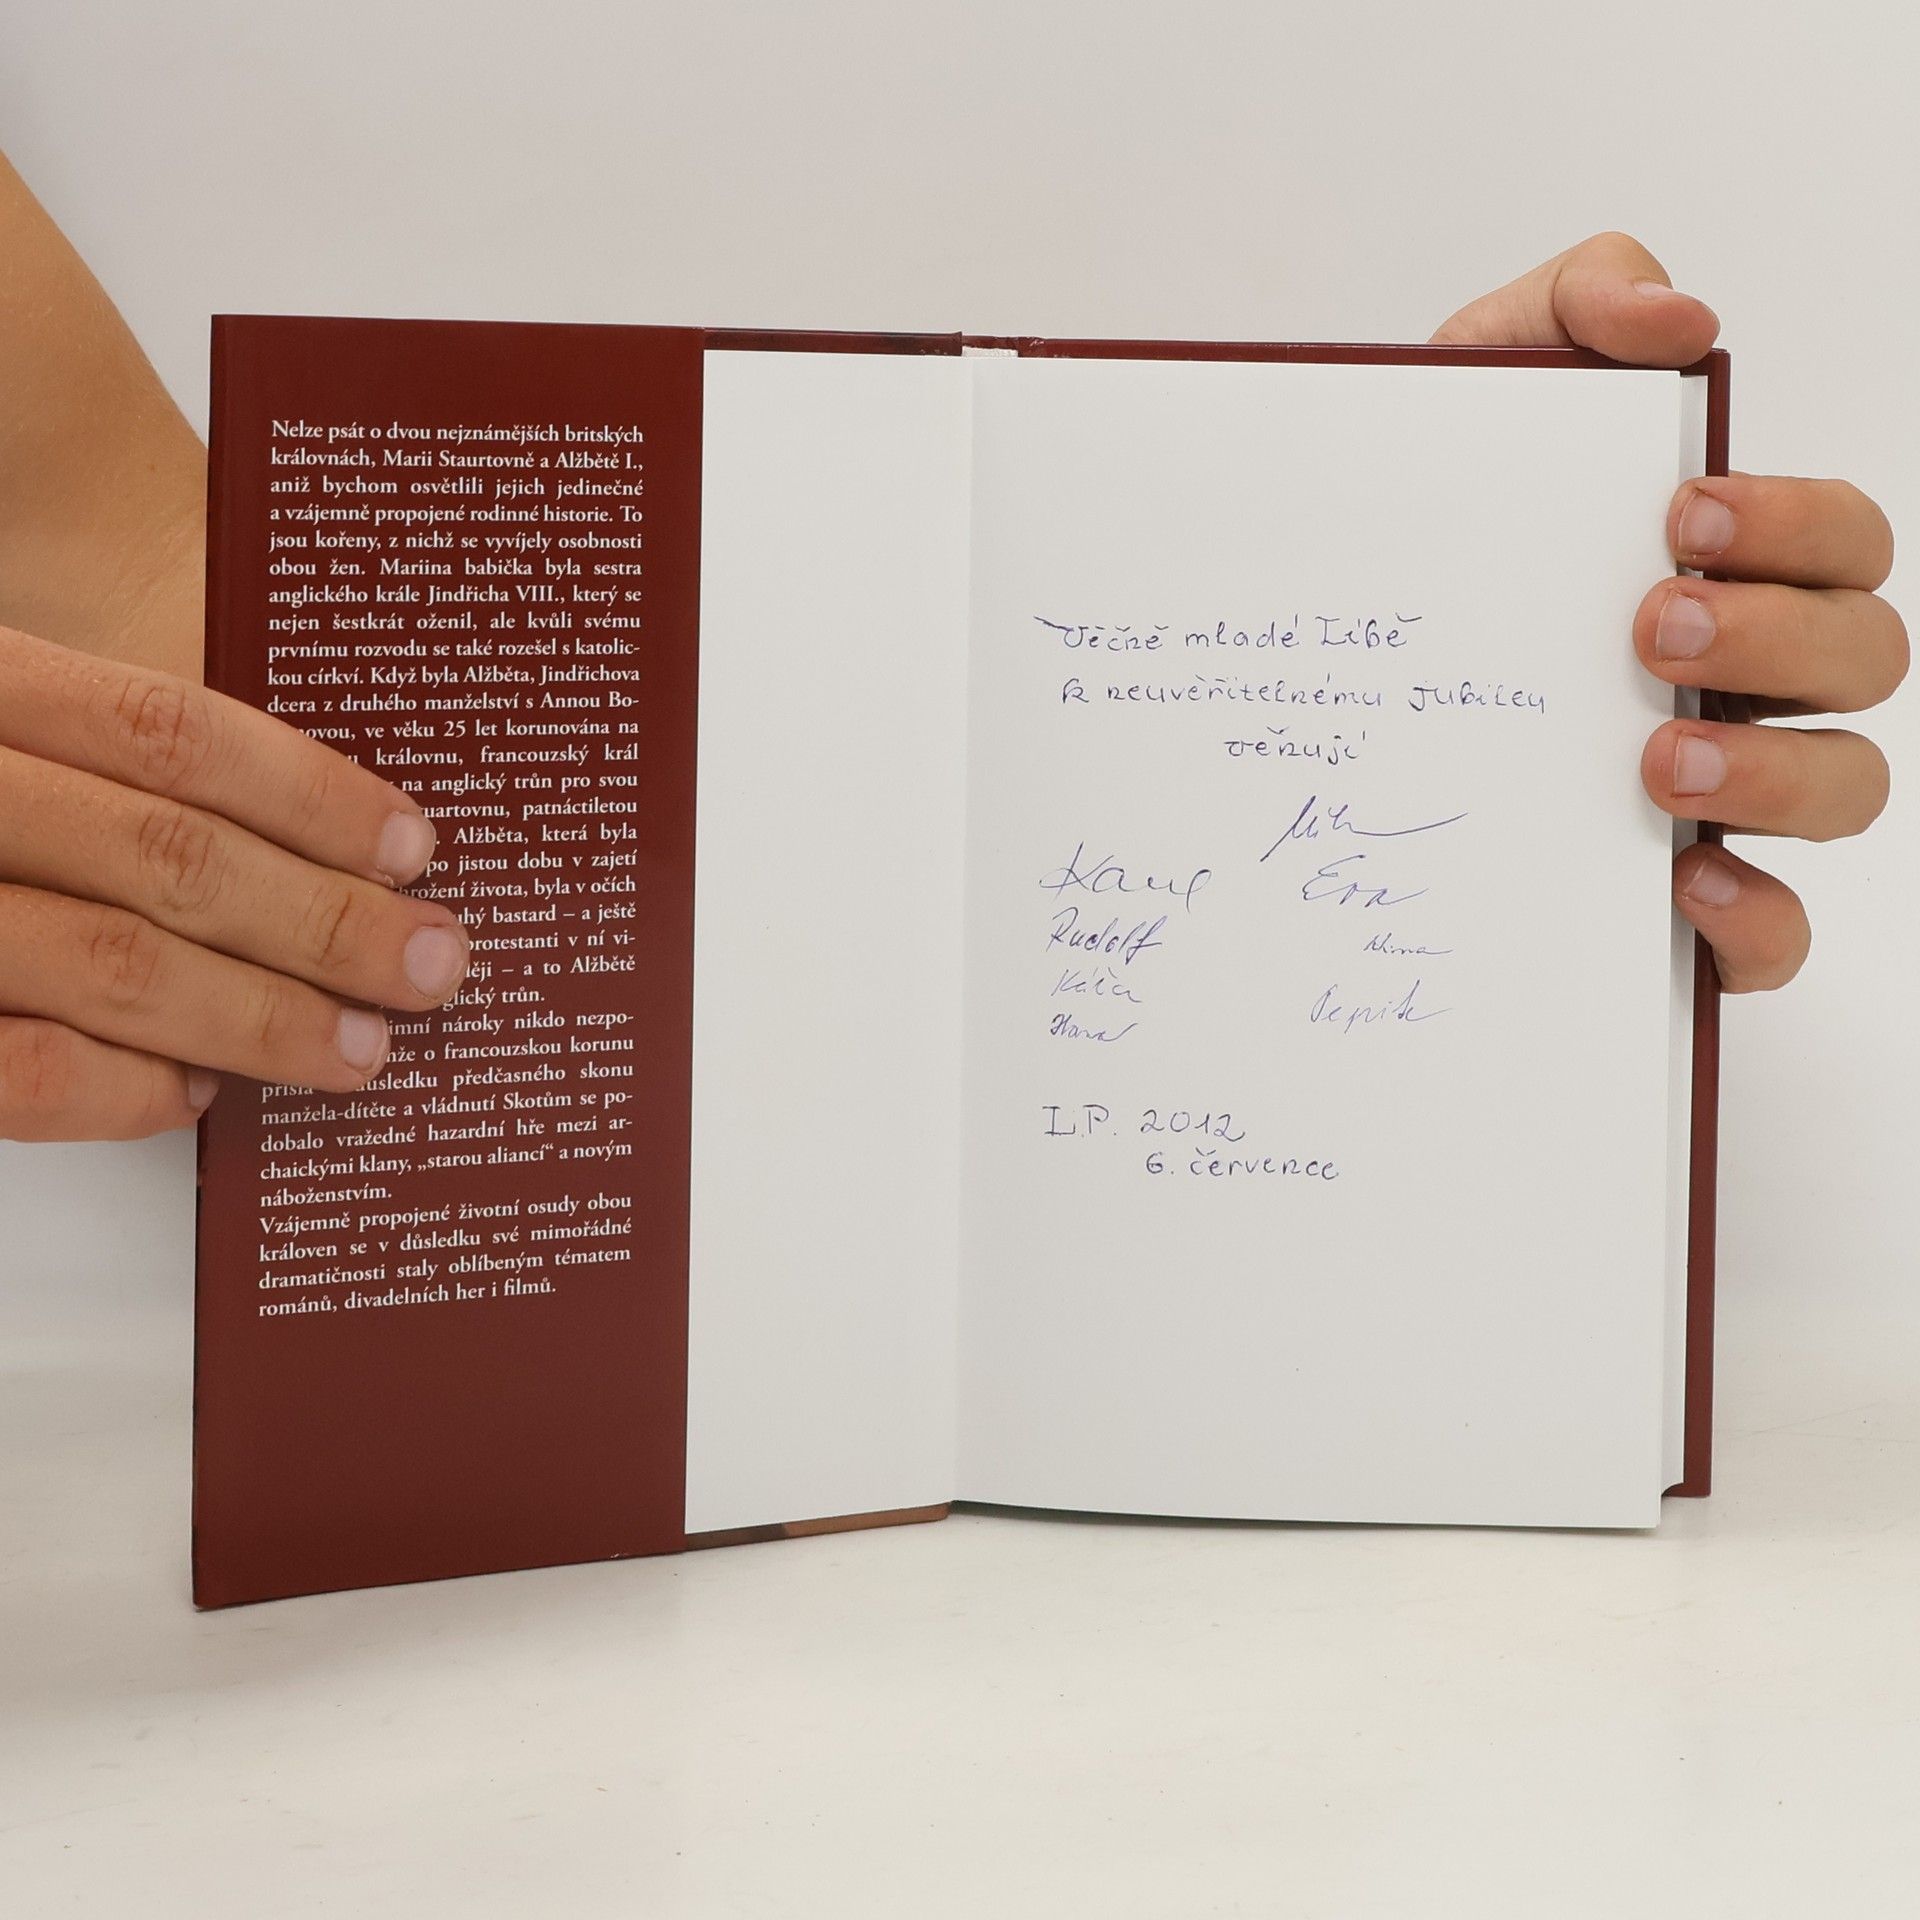 Nelze psát o dvou nejznámějších britských
královnách, Marii Staurtovně a Alžbětě I.,
aniž bychom osvětlili jejich jedinečné
a vzájemně propojené rodinné historie. To
jsou kořeny, z nichž se vyvíjely osobnosti
obou žen. Mariina babička byla sestra
anglického krále Jindřicha VIII., který se
nejen šestkrát oženil, ale kvůli svému
prvnímu rozvodu se také rozešel s katolic-
kou církví. Když byla Alžběta, Jindřichova
dcera z druhého manželství s Annou Bo-
ovou, ve věku 25 let korunována na
královnu, francouzský král
na anglický trůn pro svou
uartovnu, patnáctiletou
. Alžběta, která byla
po jistou dobu v zajetí
hrožení života, byla v očích
uhý bastard – a ještě
protestanti v ní vi-
ději – a to Alžbětě
glický trůn.
imní nároky nikdo nezpo-
nže o francouzskou korunu
přišla důsledku předčasného skonu
manžela-dítěte a vládnutí Skotům se po-
dobalo vražedné hazardní hře mezi ar-
chaickými klany, „starou aliancí“ a novým
náboženstvím.
Vzájemně propojené životní osudy obou
královen se v důsledku své mimořádné
dramatičnosti staly oblíbeným tématem
románů, divadelních her i filmů.
Věčně mladé Libě
k neuvěřitelnému jubileu
věnují
Eva
Rudolf
Káča
Hana
Pepík
L.P. 2012
6. července